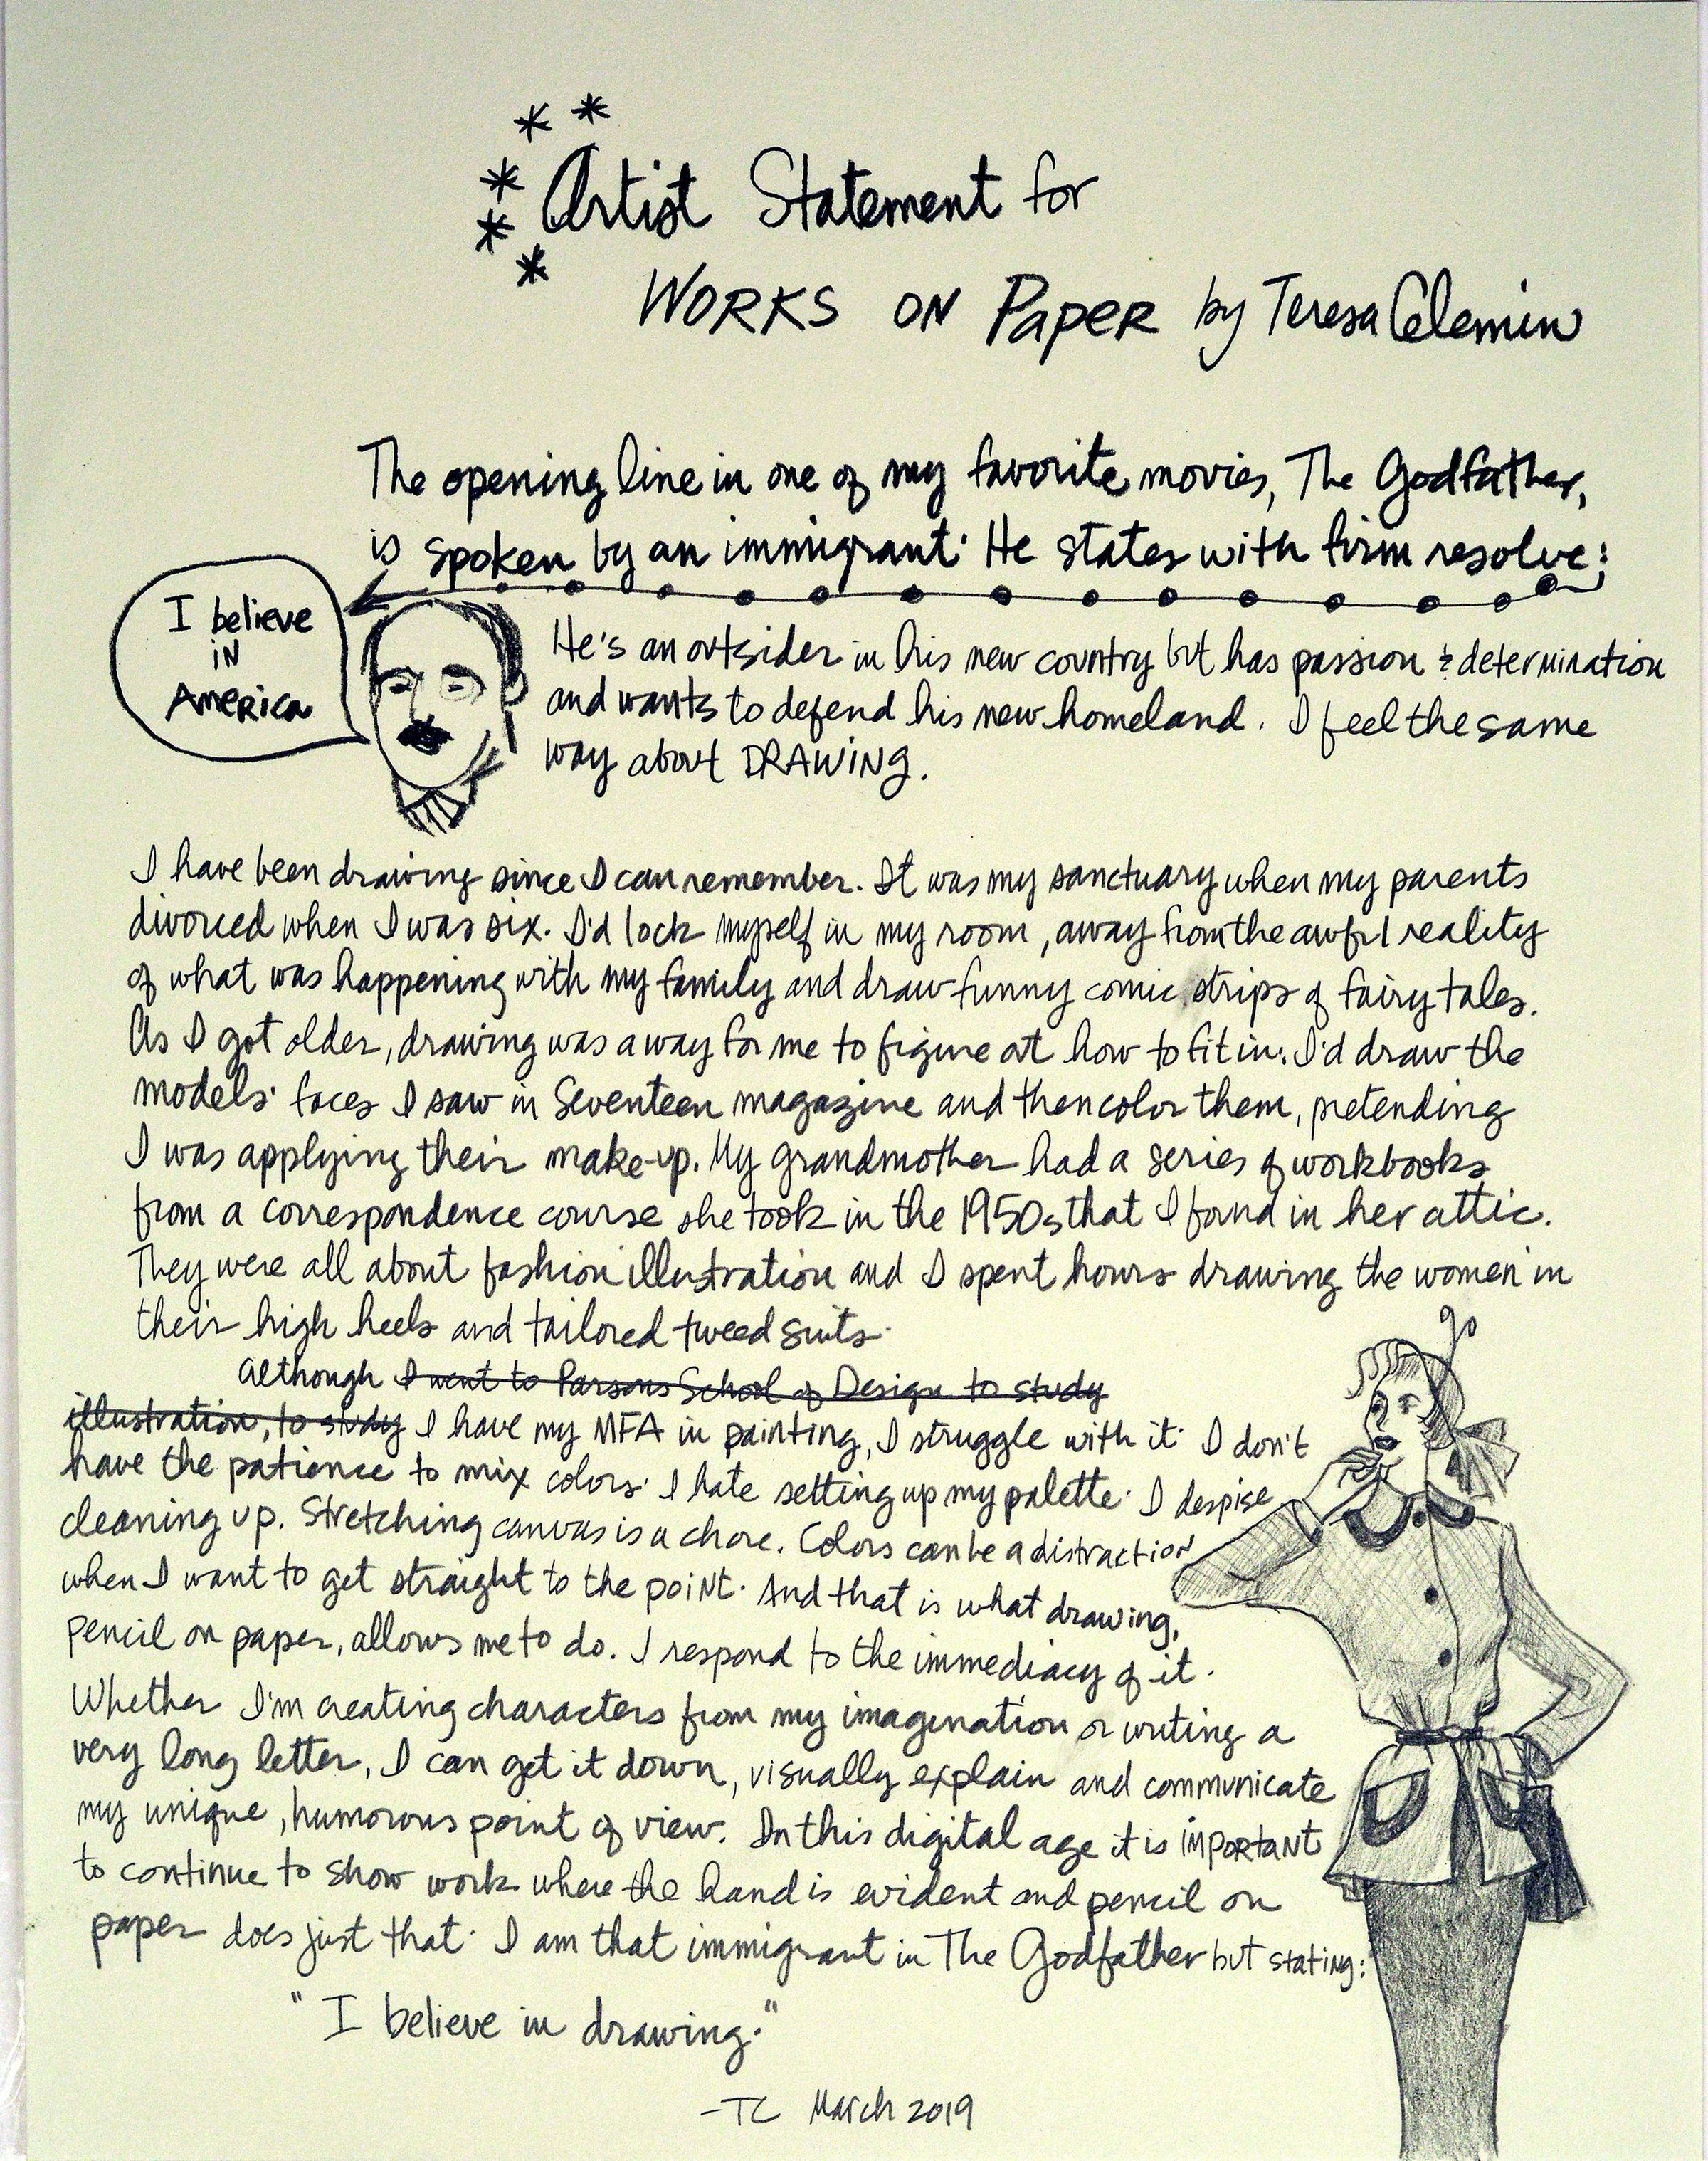 Artist Statement for
WORKS ON PAPER by Teresa Celemin
The opening line in one of my favorite movies, The Godfather,
is spoken by an immigrant. He states with firm resolve:
I believe
IN
AMERICA
He's an outsider in his new country but has passion & determination
and wants to defend his new homeland. I feel the same
way about DRAWING.
I have been drawing since I can remember. It was my sanctuary when my parents
divorced when I was six. I'd lock myself in my room, away from the awful reality
of what was happening with my family and draw funny comic strips of fairy tales.
As I got older, drawing was a way for me to figure out how to fit in. I'd draw the
models' faces I saw in Seventeen magazine and then color them, pretending
I was applying their make-up. My grandmother had a series of workbooks
from a correspondence course she took in the 1950s that I found in her attic.
They were all about fashion illustration and I spent hours drawing the women in
their high heels and tailored tweed suits.
Although I went to Parsons School of Design to study
illustration, to study I have my MFA in painting, I struggle with it. I don't
have the patience to mix colors. I hate setting up my palette. I despise
cleaning up. Stretching canvas is a chore. Colors can be a distraction
when I want to get straight to the point. And that is what drawing,
pencil on paper, allows me to do. I respond to the immediacy of it.
Whether I'm creating characters from my imagination or writing a
very long letter, I can get it down, visually explain and communicate
my unique, humorous point of view. In this digital age it is important
to continue to show work where the hand is evident and pencil on
paper does just that. I am that immigrant in The Godfather but stating:
"I believe in drawing."
-TC March 2019